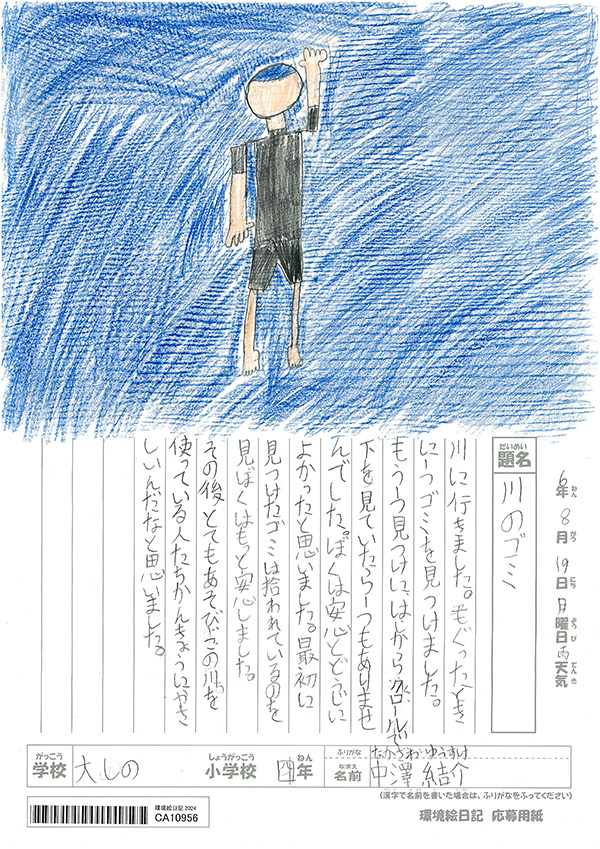 6年8月19日月曜日雨天気
ねん がつ にち ようび てんき
だいめい
題名
川のゴミ
川に行きました。もぐったとき
に一つゴミを見つけました。
もう一つ見つけに、はしから、クロールで
下を見ていたら一つもありませ
んでした。ぼくは安心とどうじに
よかったと思いました。最初に
見つけたゴミは拾われているのを
見ぼくはもっと安心しました。
その後、とてもあそび、この川を
使っている人たちかんきょうにやさ
しいんだなと思いました。
がっこう
学校
大しの
しょうがっこう
小学校
四
ねん
年
ふりがな
なかざわ ゆうすけ
なまえ
名前
中澤 結介
(漢字で名前を書いた場合は、ふりがなをふってください)
環境絵日記 2024
CA10956
環境絵日記 応募用紙